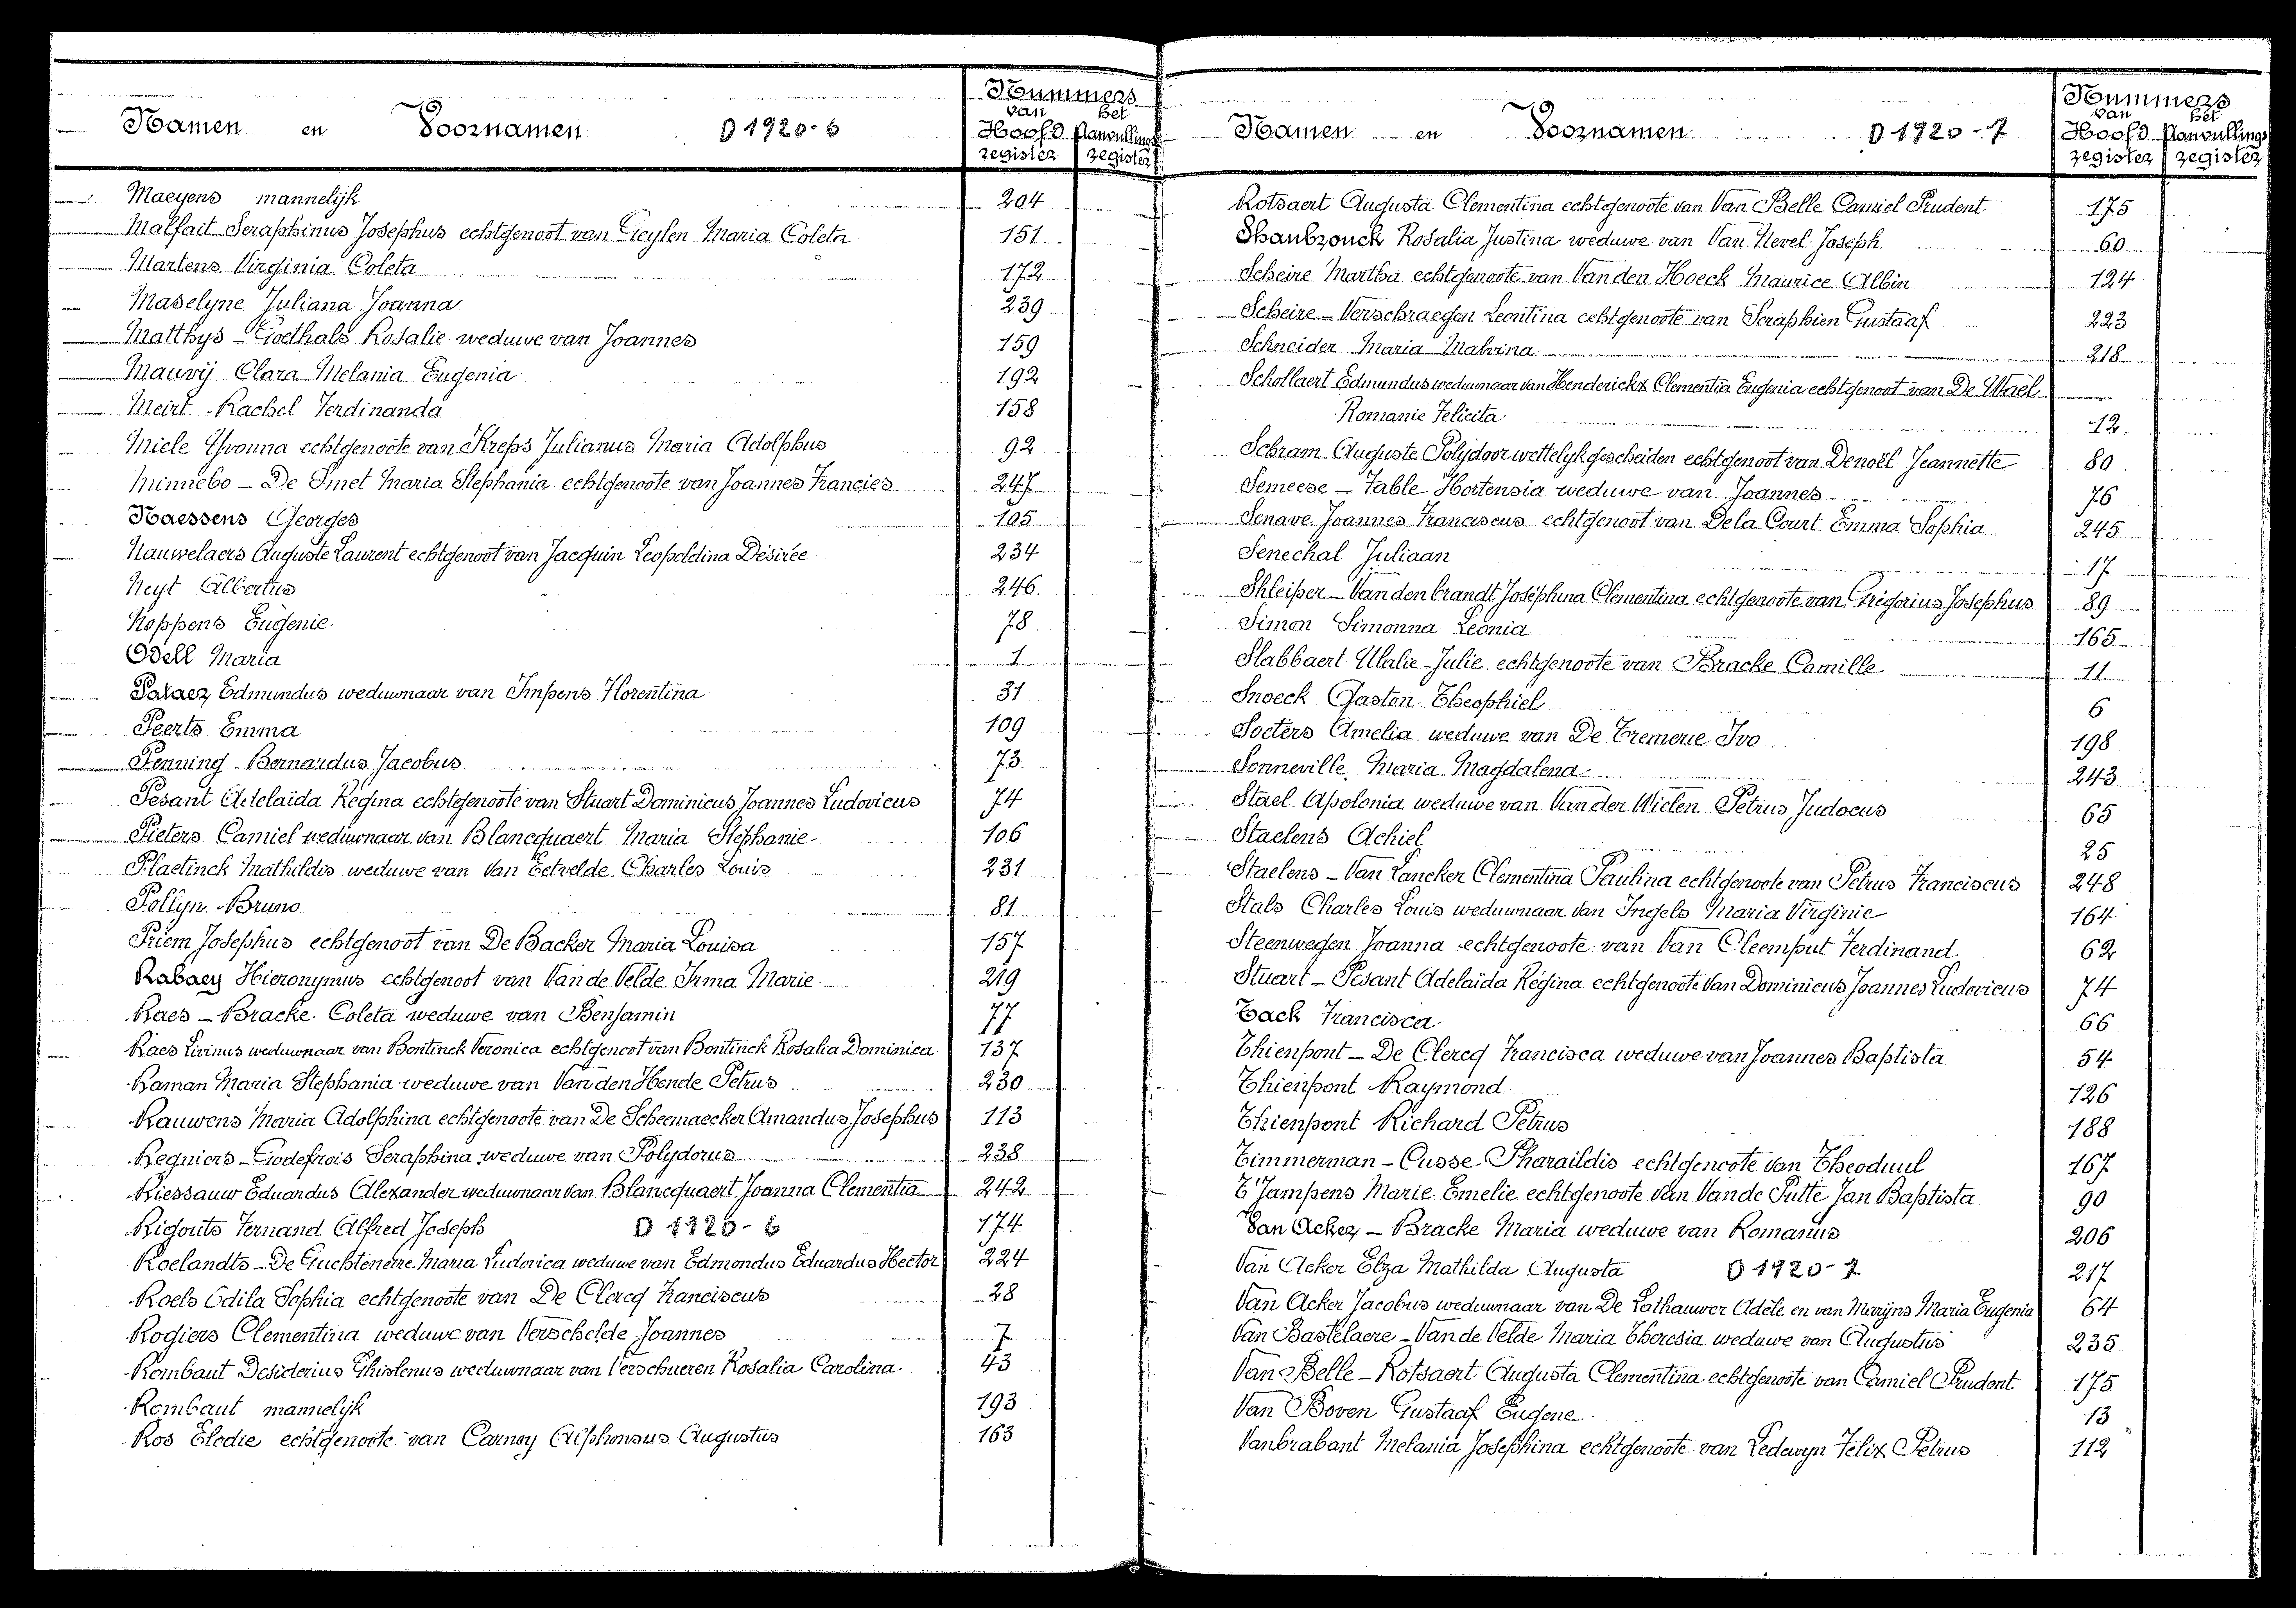 Namen en Voornamen D 1920-6
Nummers
van het
Hoofd Aanvullings
register register
Maeyens mannelijk 204
Malfait Seraphinus Josephus echtgenoot van Geylen Maria Coleta 151
Martens Virginia Coleta 172
Maselyne Juliana Joanna 239
Matthys - Goethals Rosalie weduwe van Joannes 159
Mauvij Clara Melania Eugenia 192
Meirt Rachel Ferdinanda 158
Miele Yvonna echtgenoote van Kreps Julianus Maria Adolphus 92
Minnebo - De Smet Maria Stephania echtgenoote van Joannes Francies 247
Naessens Georges 105
Nauwelaers Auguste Laurent echtgenoot van Jacquin Leopoldina Désirée 234
Neyt Albertus 246
Noppens Eugenie 78
Odell Maria 1
Edmundus weduwnaar van Impens Florentina 31
Peerts Emma 109
Penning Bernardus Jacobus 73
Pesant Adelaïda Régina echtgenoote van Stuart Dominicus Joannes Ludovicus 74
Pieters Camiel weduwnaar van Blancquaert Maria Stéphanie 106
Plaetinck Mathildis weduwe van Van Eetvelde Charles Louis 231
Pollyn Bruno 81
Priem Josephus echtgenoot van De Backer Maria Louisa 157
Rabaey Hieronymus echtgenoot van Van de Velde Irma Marie 219
Raes - Bracke Coleta weduwe van Benjamin 77
Raes Livinus weduwnaar van Bontinck Veronica echtgenoot van Bontinck Rosalia Dominica 137
Raman Maria Stephania weduwe van Van den Hende Petrus 230
Rauwens Maria Adolphina echtgenoote van De Scheemaecker Amandus Josephus 113
Regniers - Godefrois Seraphina weduwe van Polydorus 238
Riessauw Eduardus Alexander weduwnaar van Blancquaert Joanna Clementia 242
Rigouts Fernand Alfred Joseph D 1920-6 174
Roelandts - De Guchteneire Maria Ludovica weduwe van Edmondus Eduardus Hector 224
Roels Odila Sophia echtgenoote van De Clercq Franciscus 28
Rogiers Clementina weduwe van Verschelde Joannes 7
Rombaut Desiderius Ghislenus weduwnaar van Verschueren Rosalia Carolina 43
Rombaut mannelijk 193
Ros Elodie echtgenoote van Carnoy Alphonsus Augustus 163
Namen en Voornamen D 1920-7
Nummers
van het
Hoofd Aanvullings
register register
Rotsaert Augusta Clementina echtgenoote van Van Belle Camiel Prudent 175
Rosalia Justina weduwe van Van Nevel Joseph 60
Scheire Martha echtgenoote van Van den Hoeck Maurice Albin 124
Scheire - Verschraegen Leontina echtgenoote van Seraphien Gustaaf 223
Schneider Maria Malvina 218
Schollaert Edmundus weduwnaar van Henderickx Clementia Eugenia echtgenoot van De Wael
Romanie Felicita 12
Schram Auguste Polijdoor wettelyk gescheiden echtgenoot van Denoël Jeannette 80
Semeese - Table Hortensia weduwe van Joannes 76
Senave Joannes Franciscus echtgenoot van De la Court Emma Sophia 245
Senechal Juliaan 17
Shleiper - Van den brandt Joséphina Clementina echtgenoote van Grigorius Josephus 89
Simon Simonna Leonia 165
Slabbaert Ulalie Julie echtgenoote van Bracke Camille 11
Snoeck Gaston Theophiel 6
Soeters Amelia weduwe van De Tremerie Ivo 198
Sonneville Maria Magdalena 243
Stael Apolonia weduwe van Van der Wielen Petrus Judocus 65
Staelens Achiel 25
Staelens - Van Lancker Clementina Paulina echtgenoote van Petrus Franciscus 248
Stals Charles Louis weduwnaar van Ingels Maria Virginie 164
Steenwegen Joanna echtgenoote van Van Cleemput Ferdinand 62
Stuart - Pesant Adelaïda Régina echtgenoote van Dominicus Joannes Ludovicus 74
Tack Francisca 66
Thienpont - De Clercq Francisca weduwe van Joannes Baptista 54
Thienpont Raymond 126
Thienpont Richard Petrus 188
Timmerman - Cusse Pharaildis echtgenoote van Theoduul 167
T'Jampens Marie Emelie echtgenoote van Van de Putte Jan Baptista 90
Van Acker - Bracke Maria weduwe van Romanus 206
Van Acker Elza Mathilda Augusta D 1920-7 217
Van Acker Jacobus weduwnaar van De Lathauwer Adèle en van Marijns Maria Eugenia 64
Van Bastelaere - Van de Velde Maria Theresia weduwe van Augustus 235
Van Belle - Rotsaert Augusta Clementina echtgenoote van Camiel Prudent 175
Van Boven Gustaaf Eugene 13
Vanbrabant Melania Josephina echtgenoote van Ledewyn Felix Petrus 112